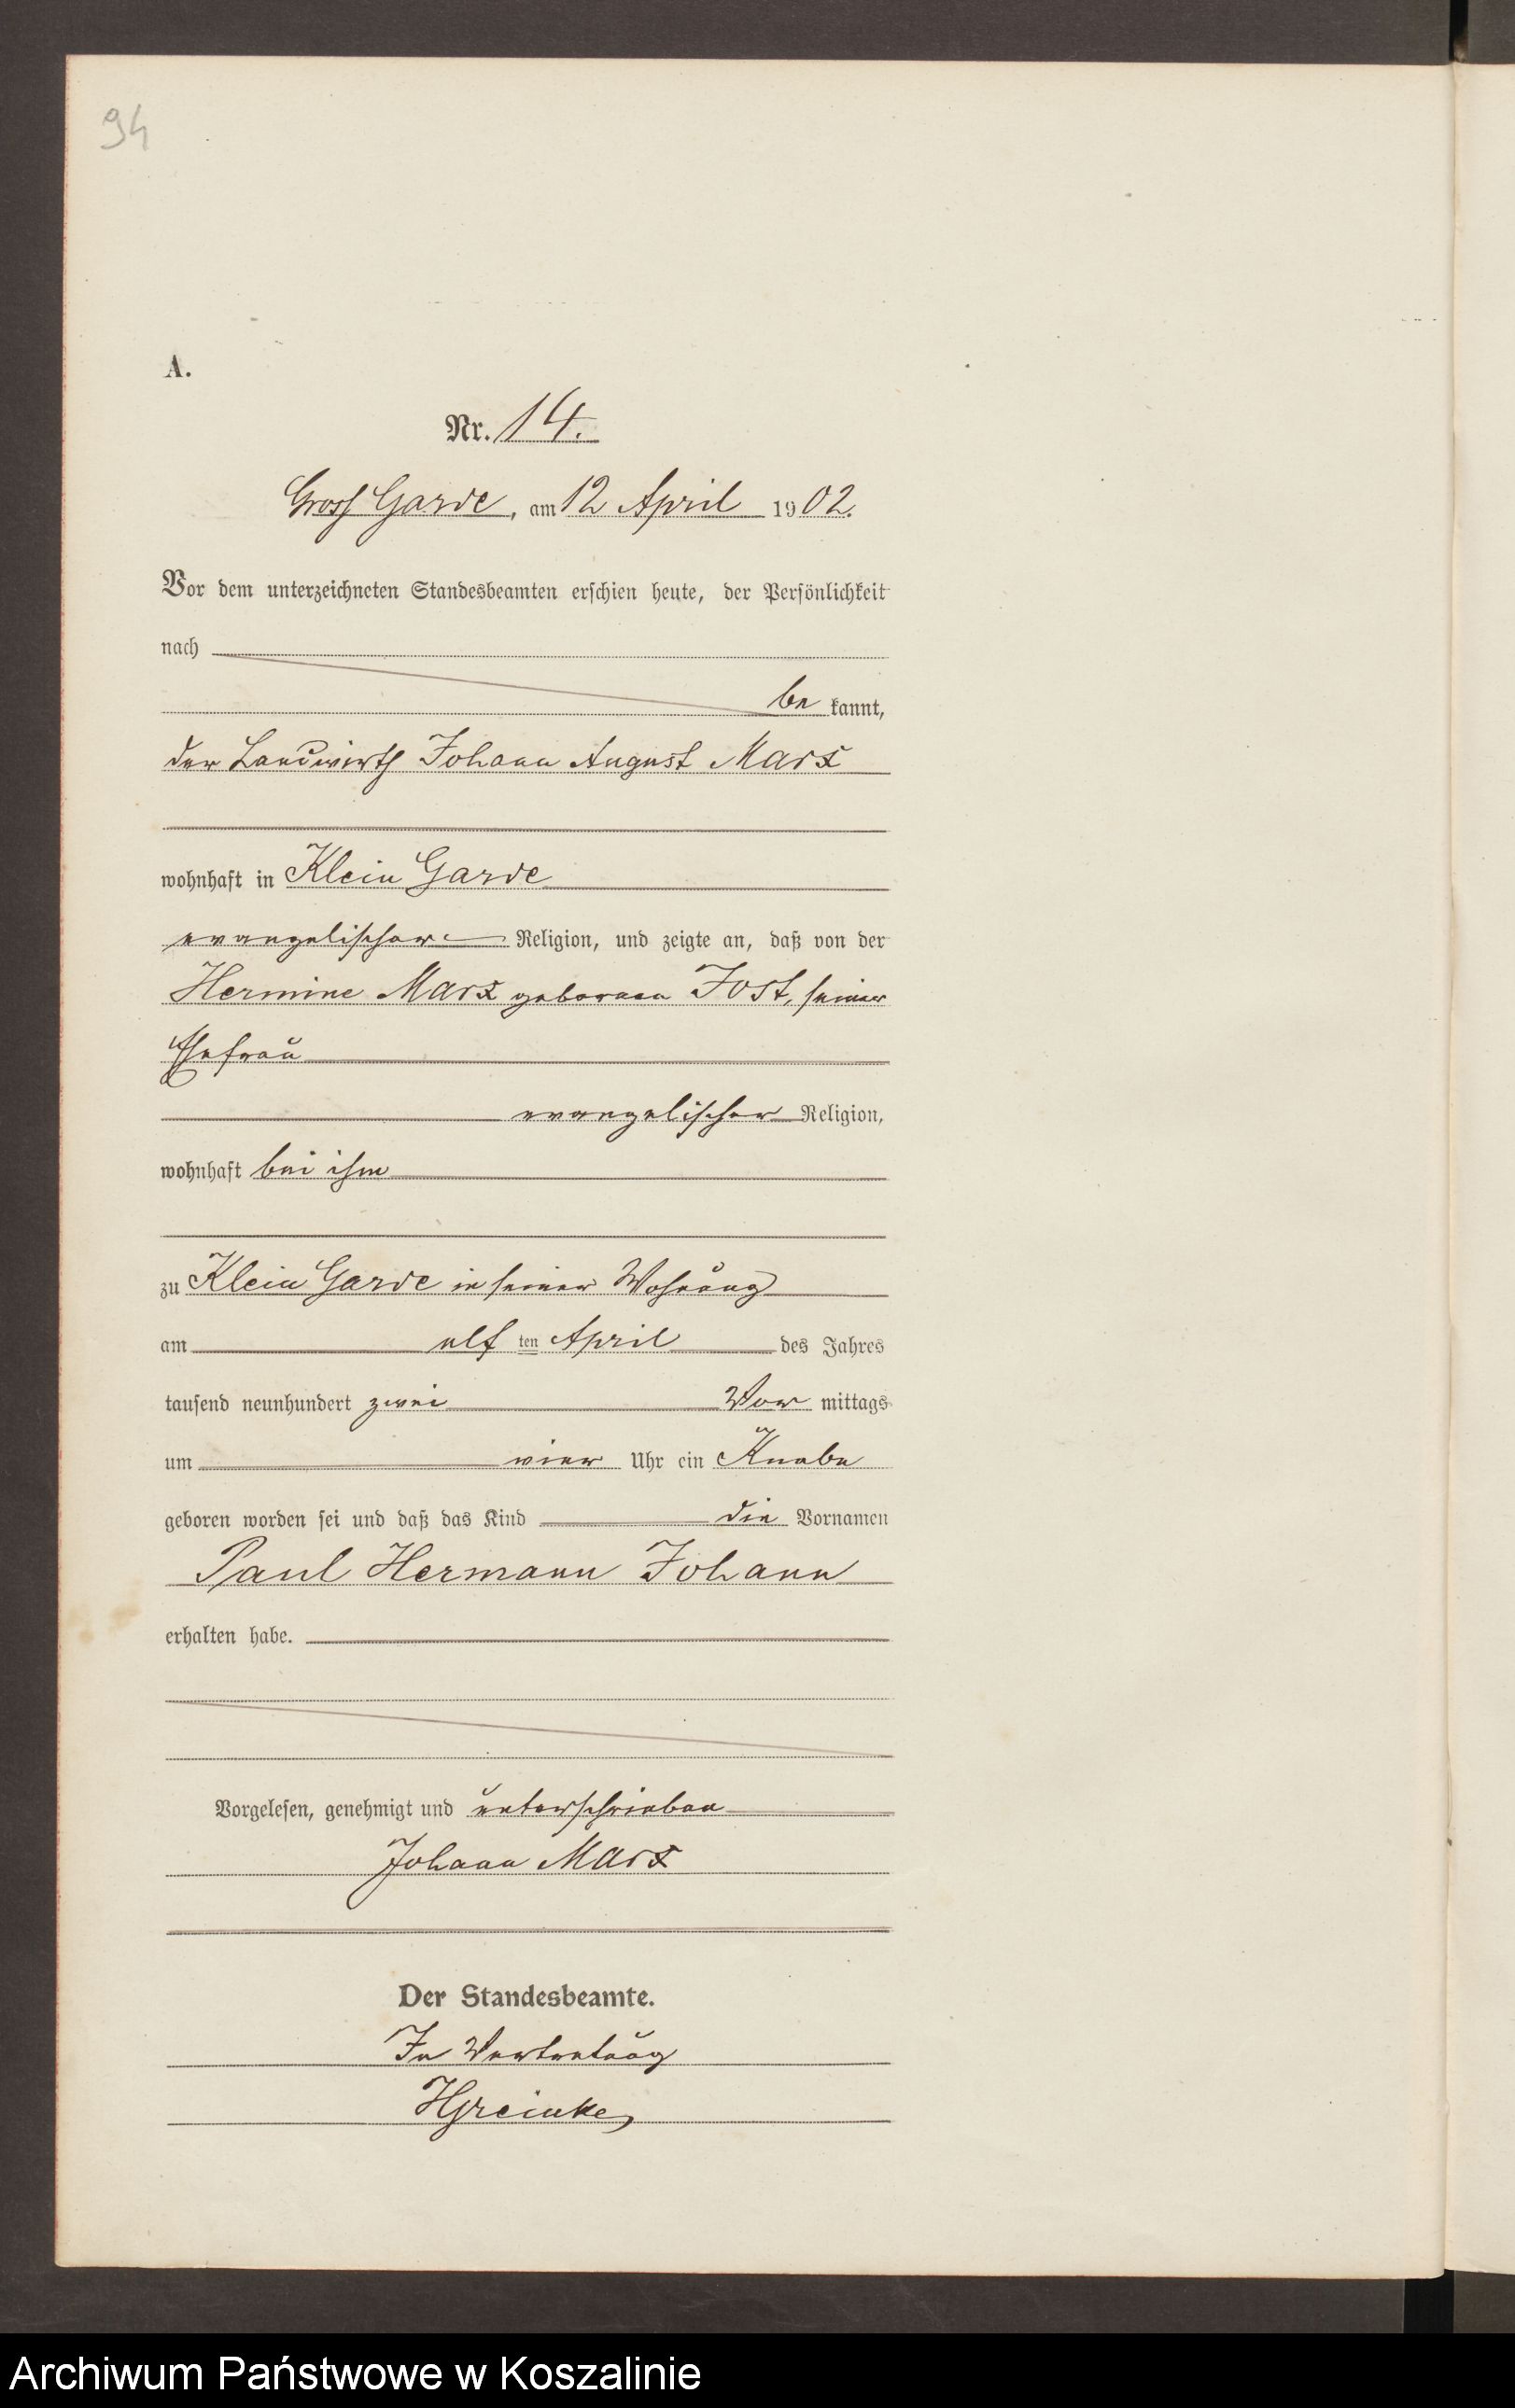 94
A.
Nr. 14.
Gross Garde, am 12 April 1902.
Vor dem unterzeichneten Standesbeamten erschien heute, der Persönlichkeit
nach
be kannt,
der Landwirth Johann August Marx
wohnhaft in Klein Garde
evangelischer Religion, und zeigte an, daß von der
Hermine Marx geborenen Jost, seiner
Ehefrau
evangelischer Religion,
wohnhaft bei ihm
zu Klein Garde in seiner Wohnung
am elf ten April des Jahres
tausend neunhundert zwei Vor mittags
um vier Uhr ein Knabe
geboren worden sei und daß das Kind die Vornamen
Paul Hermann Johann
erhalten habe.
Vorgelesen, genehmigt und unterschrieben
Johann Marx
Der Standesbeamte.
In Vertretung
HGreinke
Archiwum Państwowe w Koszalinie